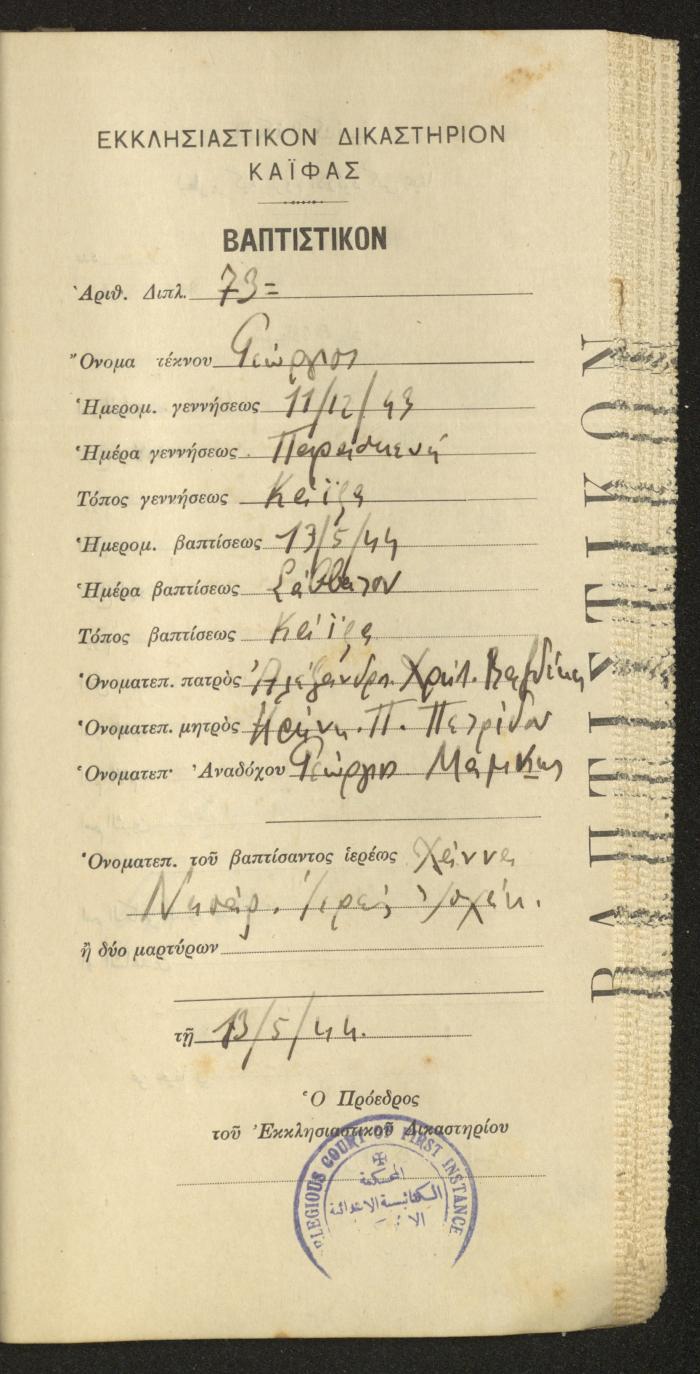 ΕΚΚΛΗΣΙΑΣΤΙΚΟΝ ΔΙΚΑΣΤΗΡΙΟΝ
ΚΑΪΦΑΣ
ΒΑΠΤΙΣΤΙΚΟΝ
Ἀριθ. Διπλ. 73=
Ὄνομα τέκνου Γεώργιος
Ἡμερομ. γεννήσεως 11/12/43
Ἡμέρα γεννήσεως Παρασκευή
Τόπος γεννήσεως Κάϊφα
Ἡμερομ. βαπτίσεως 13/5/44
Ἡμέρα βαπτίσεως Σάββατον
Τόπος βαπτίσεως Κάϊφα
Ὀνοματεπ. πατρὸς Ἀλέξανδρ. Χριστ.
Ὀνοματεπ. μητρὸς Εἰρήνη Π. Πετρίδου
Ὀνοματεπ· Ἀναδόχου Γεώργιος
Ὀνοματεπ. τοῦ βαπτίσαντος ἱερέως Χάννα
ἢ δύο μαρτύρων
τῇ 13/5/44.
Ὁ Πρόεδρος
τοῦ Ἐκκλησιαστικοῦ Δικαστηρίου
RELEGIOUS COURT OF FIRST INSTANCE
المحكمة
الكنائسية الابتدائية
ΒΑΠΤΙΣΤΙΚΟΝ